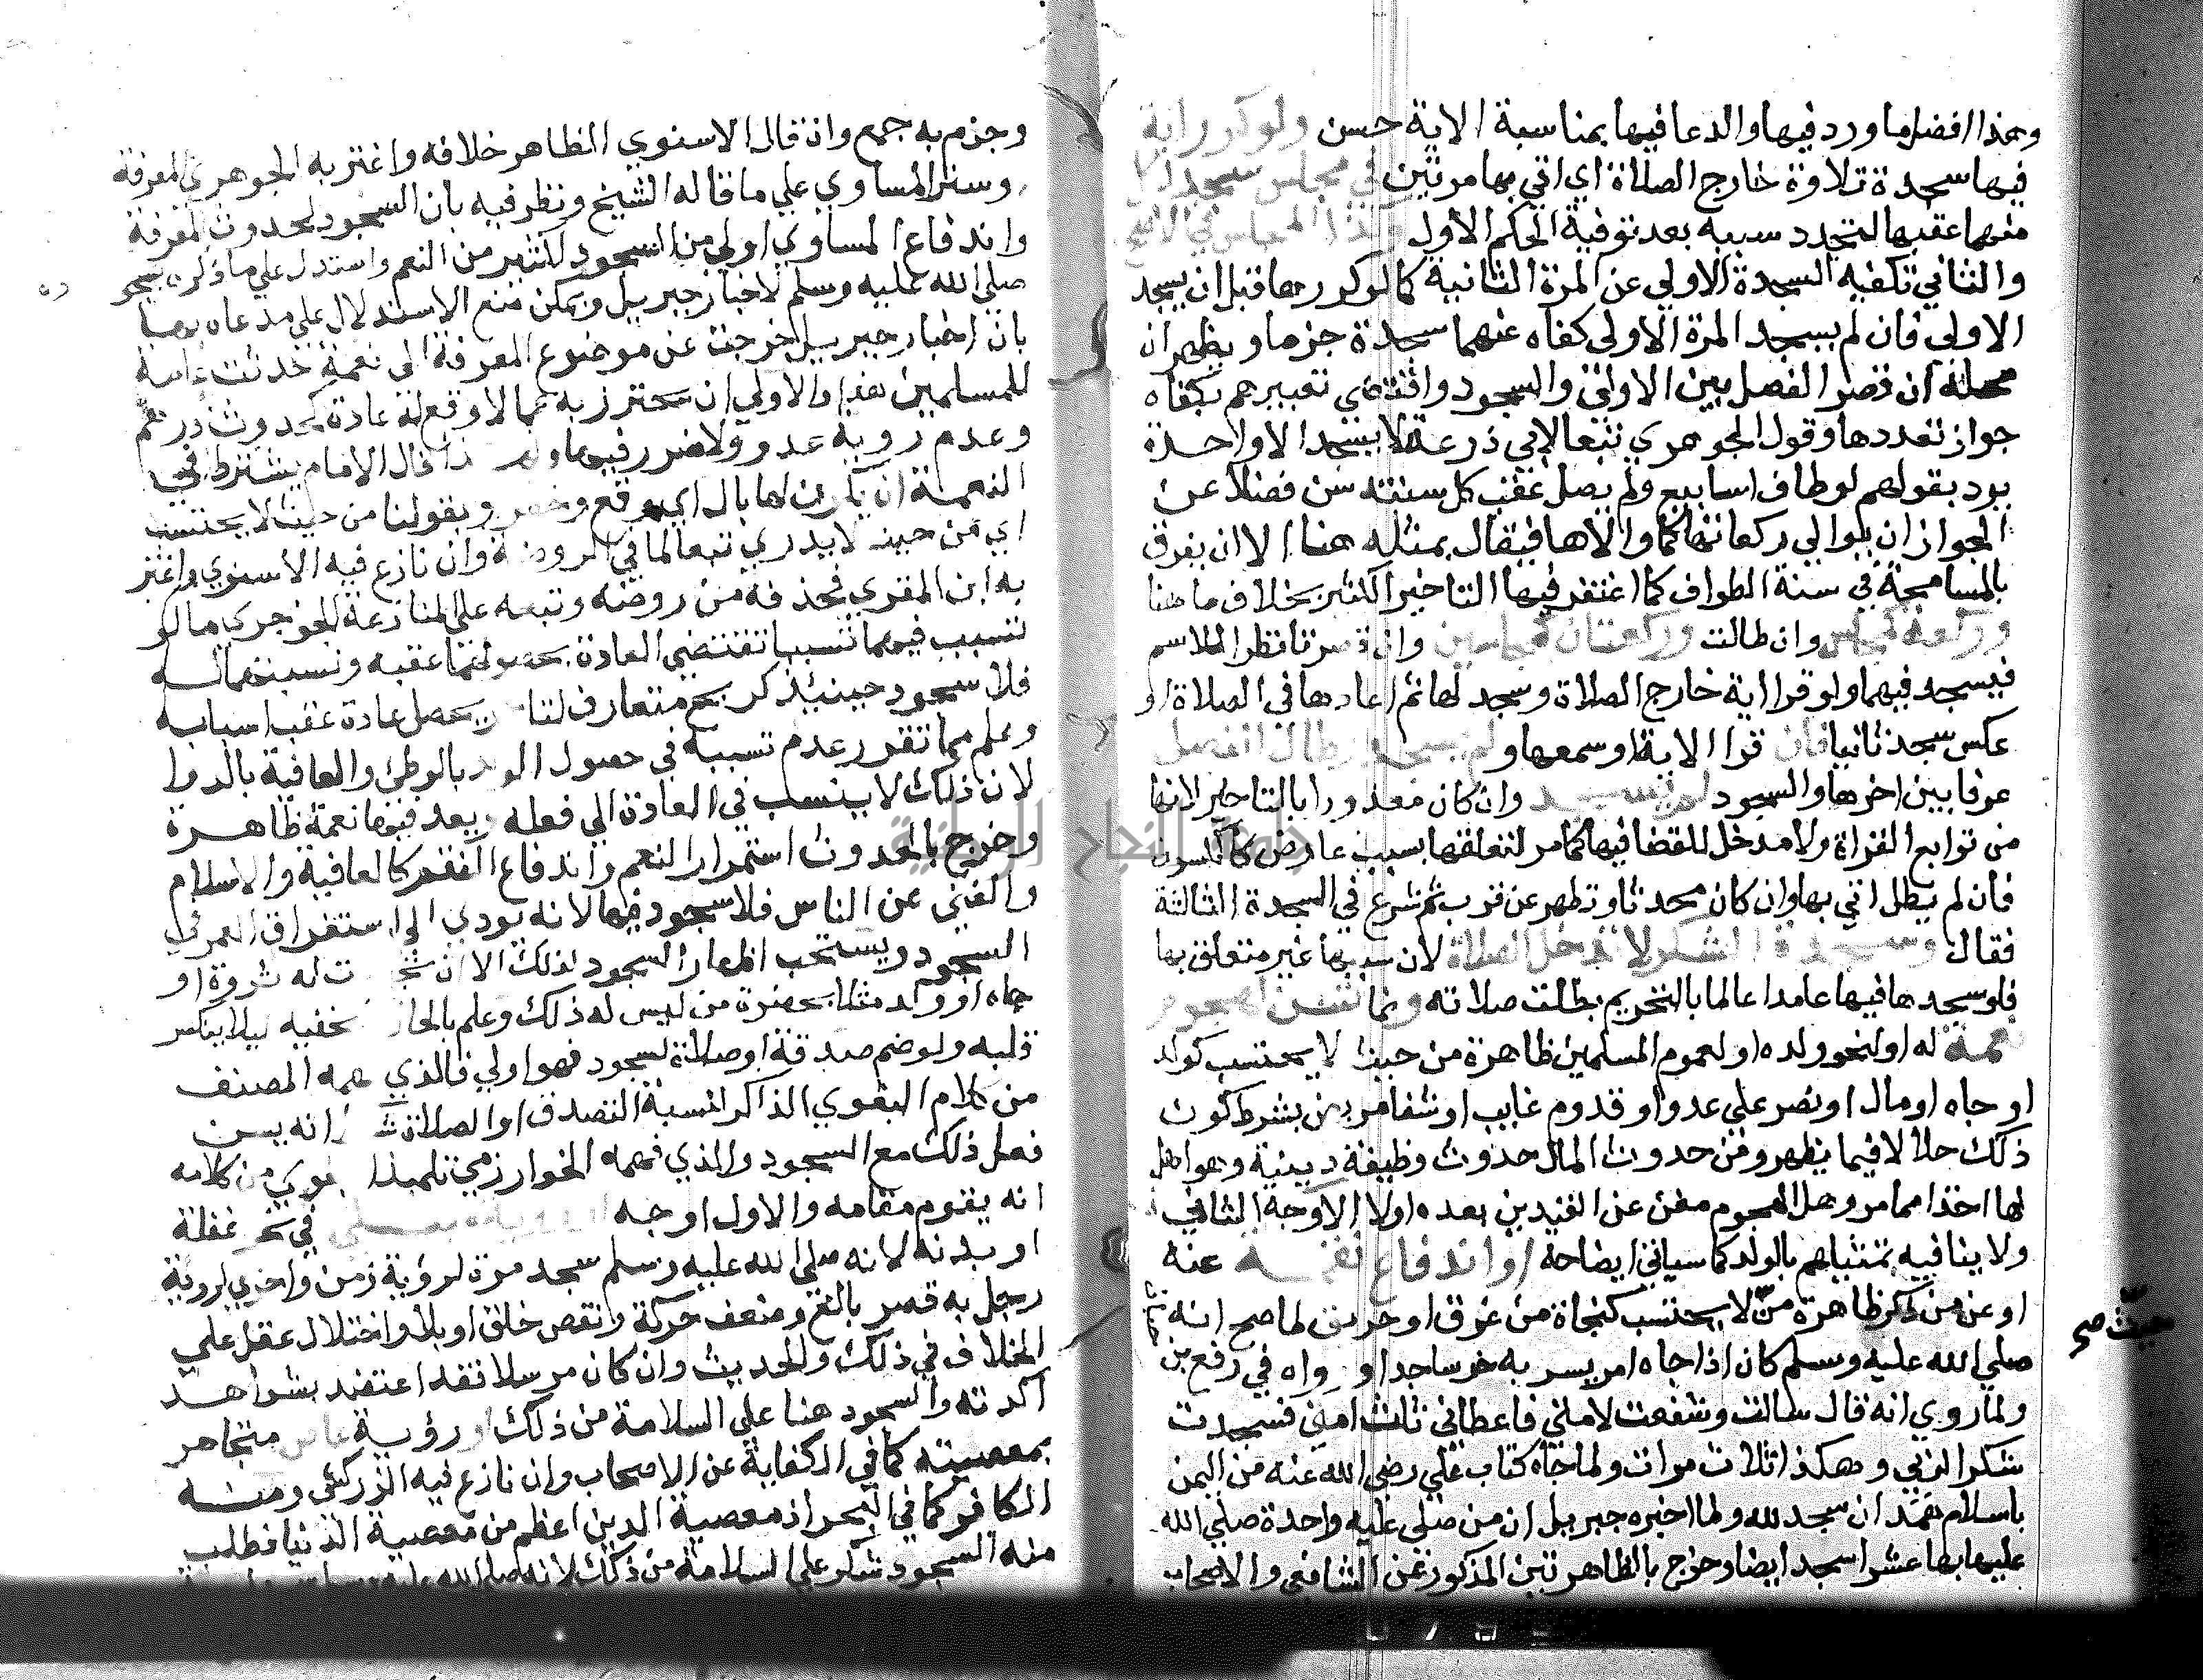 وهذا افضل ما ورد فيها والدعا فيها بمناسبة الاية حسن ولو كرر اية
فيها سجدة تلاوة خارج الصلاة اي اتي بها مرتين في مجلس سجد لكل
منهما عقبها لتجدد سببه بعد توفية الحكم الاول وكذا المجلس في الاصح
والثاني تكفيه السجدة الاولي عن المرة الثانية كما لو كررها قبل ان يسجد
الاولي فان لم يسجد المرة الاولي كفاه عنهما سجدة جزما ويظهر ان
محله ان قصر الفصل بين الاولي والسجود واقتضي تعبيرهم بكفاه
جواز تعددها وقول الجوهري تبعا لابي ذرعة لا يسجد الا واحدة
يرد بقولهم لو طاف اسابيع ولم يصل عقب كل سنته سن فضلا عن
الجواز ان يوالي ركعاتها كما والاها فيقال بمثله هنا الا ان يفرق
بالمسامحة في سنة الطواف كما اغتفر فيها التاخير الكثير بخلاف ما هنا
وركعة كمجلس وان طالت وركعتان كمجلسين وان قصرتا نظرا للاسم
فيسجد فيهما ولو قرا اية خارج الصلاة وسجد لها ثم اعادها في الصلاة او
عكس سجد ثانيا فان قرا الاية او سمعها ولم يسجد وطال الفصل
عرفا بين اخرها والسجود لم يسجد وان كان معذورا بالتاخير لانها
من توابع القراة ولا مدخل للقضا فيها كما مر لتعلقها بسبب عارض كالكسوف
فان لم يطل اتي بها وان كان محدثا وتطهر عن قرب ثم شرع في السجدة الثالثة
فقال وسجدة الشكر لا تدخل الصلاة لان سببها غير متعلق بها
فلو سجدها فيها عامدا عالما بالتحريم بطلت صلاته وانما تسن لهجوم
نعمة له او لنحو ولده او لعموم المسلمين ظاهرة من حيث لا يحتسب كولد
او جاه او مال او نصر علي عدو او قدوم غايب او شفا مريض بشرط كون
ذلك حلالا فيما يظهر ومن حدوث المال حدوث وظيفة دينية وهو اهل
لها اخذا مما مر وهل الهجوم مغن عن القيدين بعده اولا الاوجه الثاني
ولا ينافيه تمثيلهم بالولد كما سياتي ايضاحه او اندفاع نقمة عنه
او عن من ذكر ظاهرة من لا يحتسب كنجاة من غرق او حريق لما صح انه
حيث صح
صلي الله عليه وسلم كان اذا جاه امر يسر به خر ساجدا ورواه في رفع من
ولما روي انه قال سالت وشفعت لامتي فاعطاني ثلث امتي فسجدت
شكرا لربي وهكذا ثلاث مرات ولما جاه كتاب علي رضي الله عنه من اليمن
باسلام همدان سجد لله ولما اخبره جبريل ان من صلي عليه واحدة صلي الله
عليها بها عشرا سجد ايضا وخرج بالظاهرتين المذكور عن الشافعي والاصحاب
وجزم به جمع وان قال الاسنوي الظاهر خلافه واغتر به الجوهري المعرفة
وستر المساوي علي ما قاله الشيخ ونظر فيه بان السجود لحدوث المعرفة
واندفاع المساوي اولي من السجود لكثير من النعم واستدل علي ما ذكره بسجو
صلي الله عليه وسلم لاخبار جبريل ويمكن منع الاستدلال علي مدعاه بهما
بان اخبار جبريل خرجت عن موضوع المعرفة الي نعمة حدثت عامة
للمسلمين هذا والاولي ان يحترز به عما لا وقع له عادة كحدوث درهم
وعدم روية عدو ولا ضرر فيها ولهذا قال الامام يشترط في
النعمة ان يكون لها بال اي وقع وخطر وبقولنا من حيث لا يحتسب
اي من حيث لا يدري تبعا لما في الروضة وان نازع فيه الاسنوي واغتر
به ابن المقري فحذفه من روضه وتبعه علي المنازعة الجوجري ما لو
تسبب فيهما تسببا تقتضي العادة حصولهما عقبه ونسبتهما له
فلا سجود حينئذ كربح متعارف لتاجر يحصل عادة عقب اسبابه
وعلم مما تقرر عدم تسببه في حصول الولد بالوطي والعافية بالدوا
لان ذلك لا ينسب في العادة الي فعله ويعد فيهما نعمة ظاهرة
وخرج بالحدوث استمرار النعم واندفاع النقم كالعافية والاسلام
والغني عن الناس فلا سجود لها لانه يودي الي استغراق العمر في
السجود ويستحب اظهار السجود لذلك الا ان تجددت له ثروة او
جاه او ولد مثلا بحضرة من ليس له ذلك وعلم بالحال فيخفيه ليلا ينكسر
قلبه ولو ضم صدقة او صلاة لسجود فهو اولي فالذي فهمه المصنف
من كلام البغوي الذاكر لنسبة التصدق او الصلاة شكرا انه يسن
فعل ذلك مع السجود والذي فهمه الخوارزمي تلميذ البغوي من كلامه
انه يقوم مقامه والاول اوجه او روية مبتلي في نحو عقله
او بدنه لانه صلي الله عليه وسلم سجد مرة لرؤية زمن واخري لروية
رجل به قصر بالغ وضعف حركة ونقص خلق او بله واختلال عقل علي
الخلاف في ذلك والحديث وان كان مرسلا لكنه اعتضد بشواهد
اكدته والسجود هنا علي السلامة من ذلك او رؤية عاص متجاهر
بمعصيته كما في الكفاية عن الاصحاب وان نازع فيه الزركشي ومثله
الكافر كما في البحر اذ معصية الدين اعظم من معصية الدنيا فطلب
منه السجود شكرا علي السلامة من ذلك لانه صلي الله عليه
جامعة النجاح الوطنية